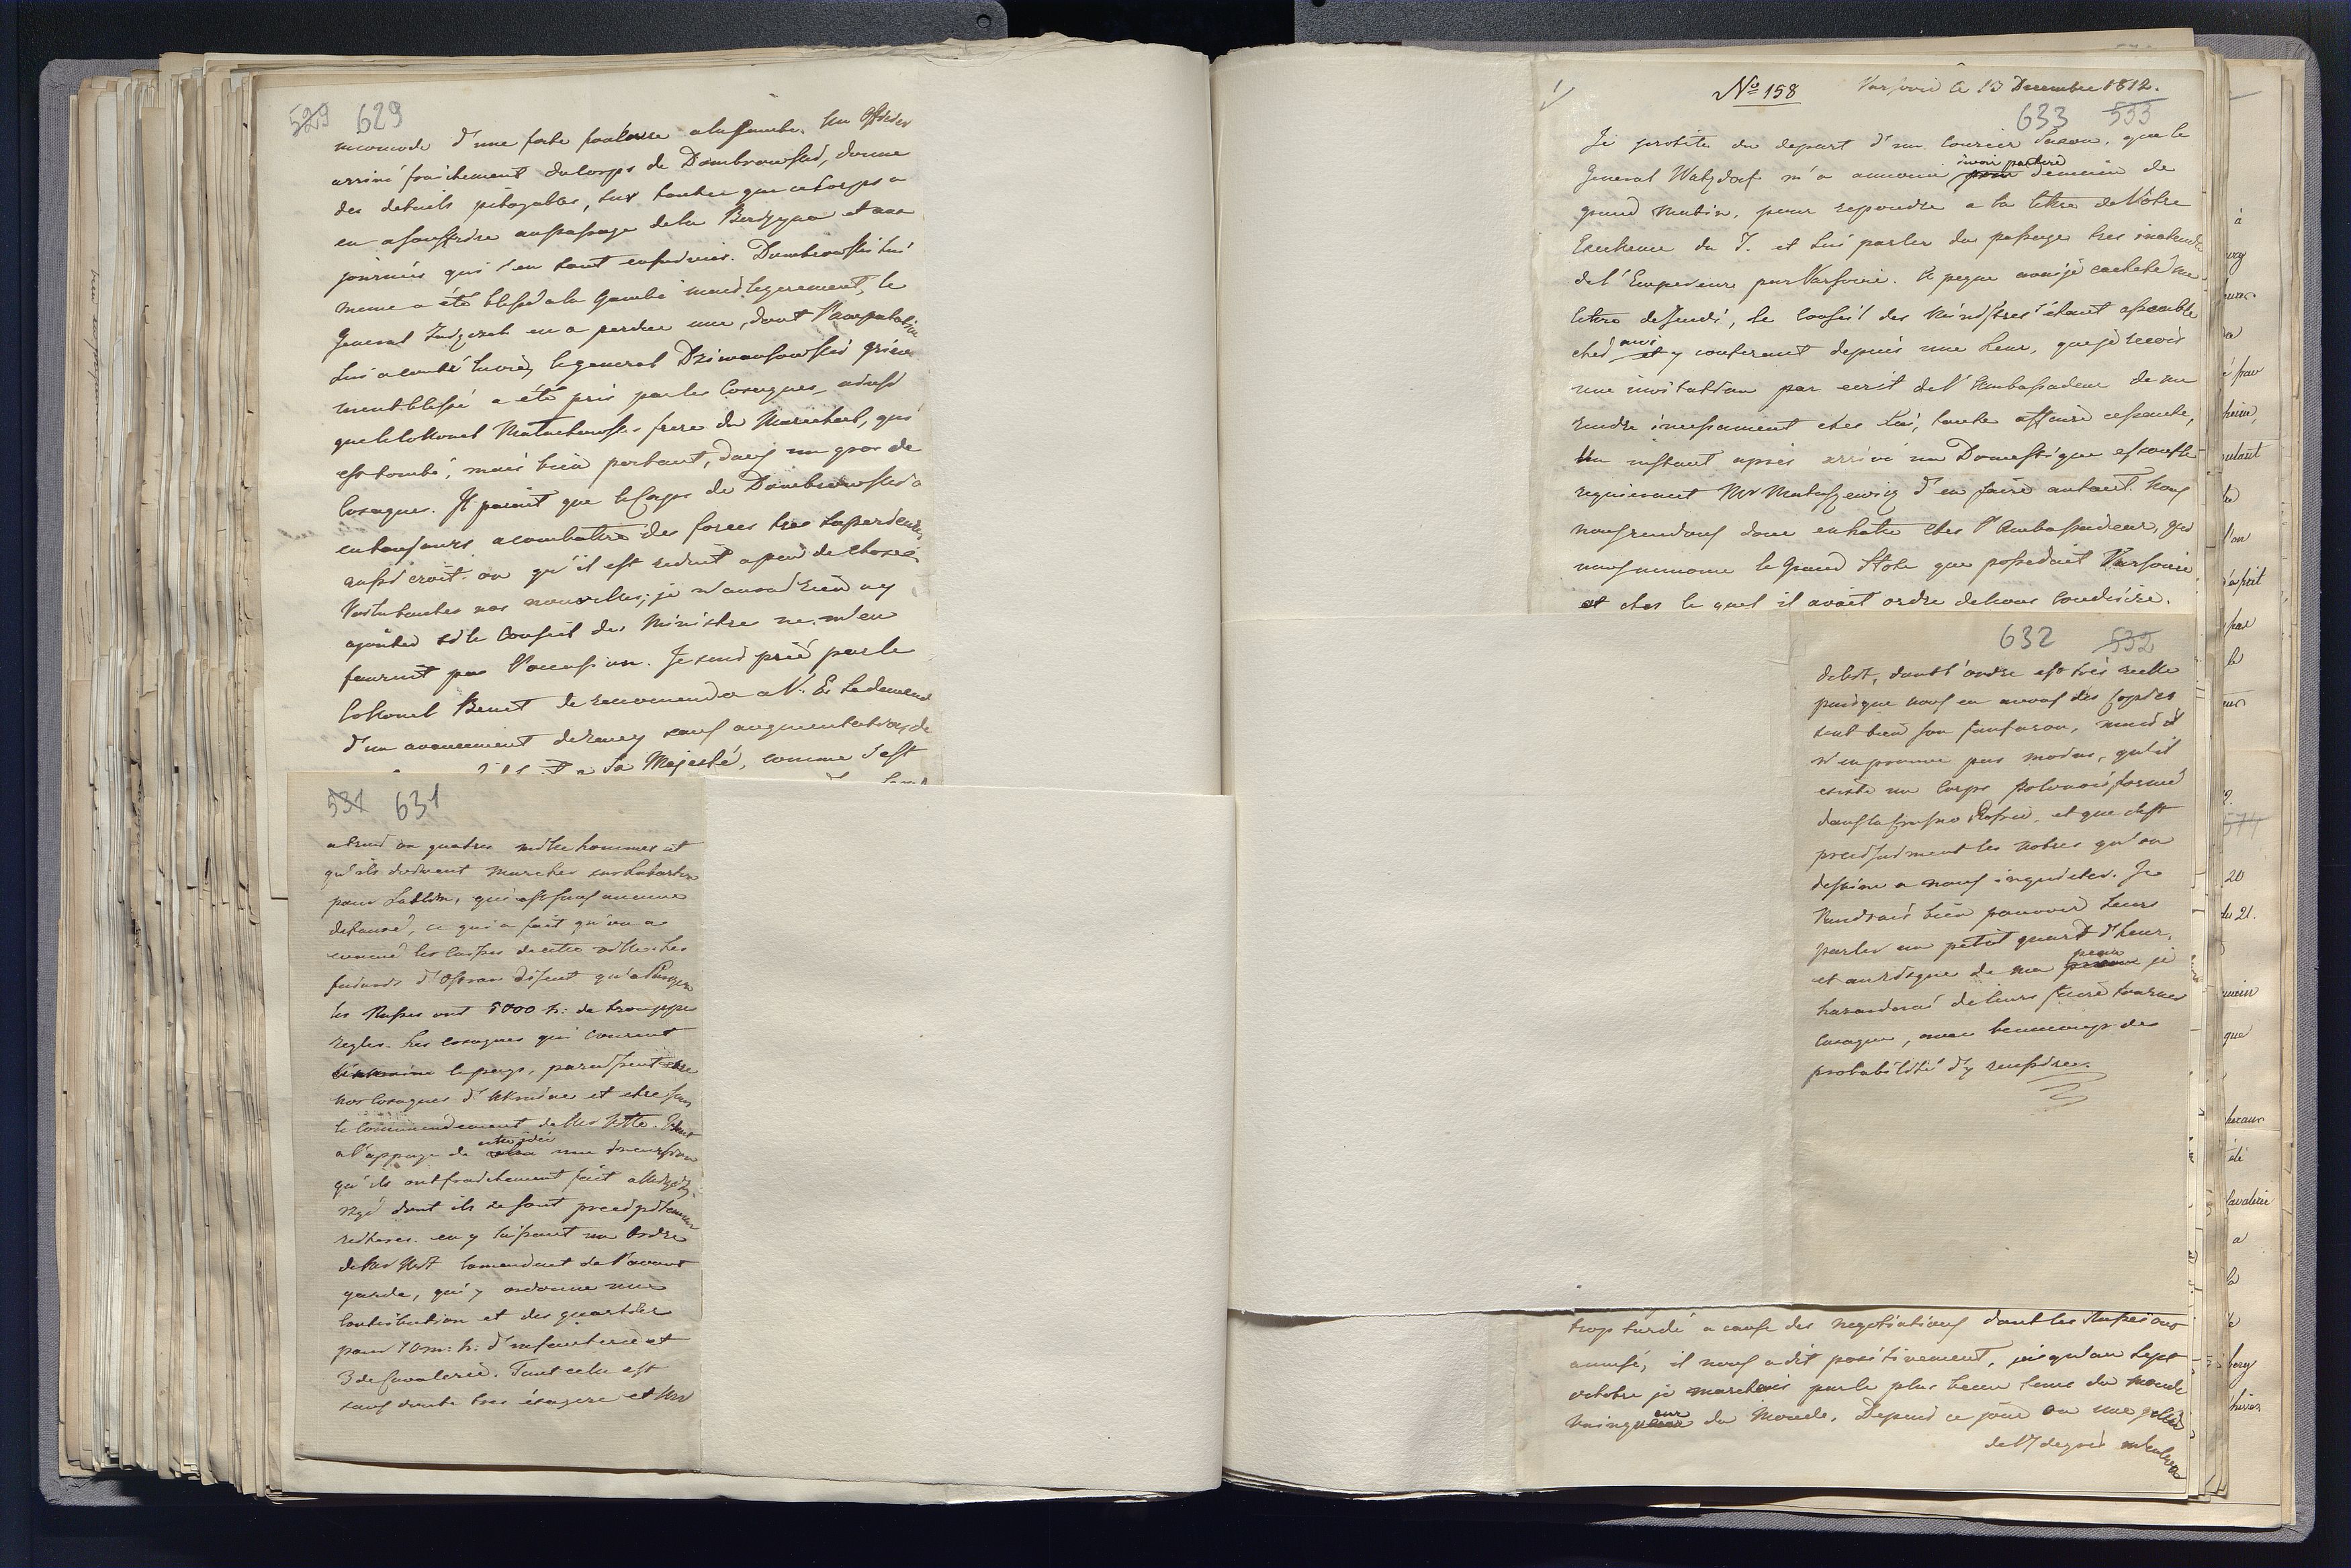 529 629
incomode d'une forte foulure a la jambe. Un Officier
arrivé fraichement du Corps de Dombrowski, donne
des details pitoyables, sur toutce que ce Corps a
eu a souffrire au passage de la Berezyna et aux
journées qui s'en sont ensuivies. Dombrowski lui
meme a été blessé a la jambe mais legerement, le
General en a perdue une, dont l'amputation
lui a couté la vie, le general Dziewanowski grieve
ment blessé a été pris par les Cosaques, ainsi
que le Collonel Małachowski frere du Marechal, qui
est tombé, mais bien portant, dans un gros de
Cosaques. Il parait que le Corps de Dombrowski a
eu toujours a combattre des forces tres superieures,
aussi croit-on qu'il est reduit a peu de chose.
Voila toutes nos nouvelles; je n'aurai rien a y
ajouter si le Conseil des Ministre ne m'en
fournit pas l'occasion. Je suis prié par le
Collonel Benet de recomender a V. E. la demende
d'un avencement de rang sans augmentation, de
a Sa Majesté, comme c'est
531 631
a trois ou quatres mille hommes et
qu'ils doivent marcher sur Lubartow
pour Lublin, qui est sans aucune
defense, ce qui a fait qu'on a
les caisses de cette ville. Les
d'Ostrow disent qu'a
les Russes ont 5000 h: de trouppes
regles. Les cosaques qui courent
le pays, paraissent etre
nos Cosaques d'Ukraine et etre sous
le Commendement de Mr Witte.
a l'appuye de cette idée une incursion
qu'ils ont fraichement fait a
dont ils se sont precipitemment
retires. en y laissant un Ordre
de Mr Comendant de l'avant
garde, qui y ordonne une
Contribution et des quartier
pour 10 m: h: d'infanterie et
3 de Cavalerie. Tout cela est
sans doute tres exagere et Mr
No 158 Varsovie ce 13 Decembre 1812.
633 533
Je profite du depart d'un Courier Saxon, que le
General Watzdorf m'a annoncé devoir partire demain de
grand matin, pour repondre a la lettre de Votre
Excellence du 7. et lui parler du passage tres inatendu
de l'Empereur par Varsovie. A peyne avais je cacheté ma
lettre de Jeudi, le Conseil des Ministres étant assemblé
chez moi et y conferant depuis une heur, que je recois
une invitation par ecrit de l'Ambassadeur de me
rendre incessament chez Lui, toute affaire cessante,
Un instant apres arrive un Domestique essouflé
requierant Mr Matuszewicz d'en faire autant. Nous
nous rendons donc en hate chez l'Ambassadeur, qui
nous annonce le grand Hote que possedait Varsovie
et chez le quel il avait ordre de nous conduire.
632 532
, dont l'ordre est tres reelle
puisque nous en avons des copies
est bien son fanfaron, mais il
n'en prouve pas moins, qu'il
existe un Corps Polonois formé
dans la Russie, et que c'est
precisement les notres qu'on
destine a nous inquieter. Je
Voudrais bien pouvoir leurs
parler un petit quart d'heur,
et au risque de ma peau je
hasarderai de leurs faire tourner
casaque, avec beaucoup de
probabilité d'y reussire.
trop tardé a cause des negotiations dont les Russes ont
amusé, il nous a dit positivement, jusqu'au sept
octobre je marchais par le plus beau tems du monde
Vainqueur du Monde. Depuis ce jour ou une gelée
de 17 degrés m'enleva